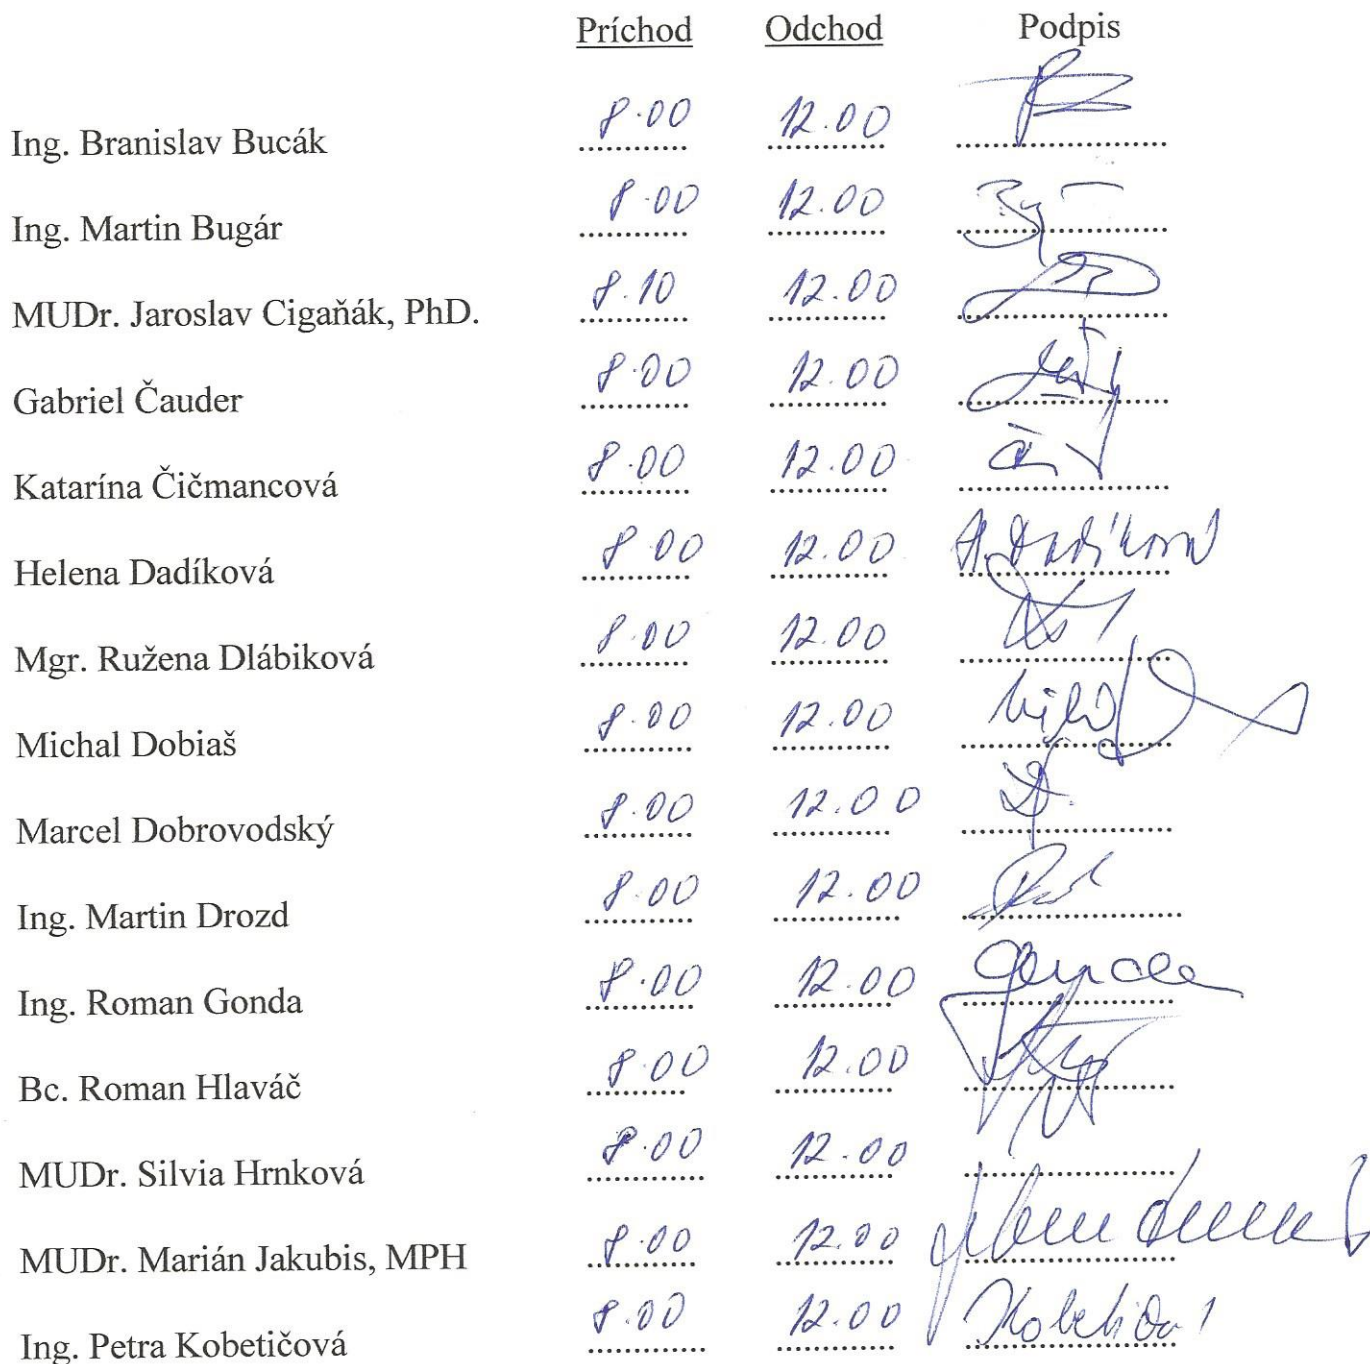 Príchod Odchod Podpis
Ing. Branislav Bucák 8.00 12.00
Ing. Martin Bugár 8.00 12.00
MUDr. Jaroslav Cigaňák, PhD. 8.10 12.00
Gabriel Čauder 8.00 12.00
Katarína Čičmancová 8.00 12.00
Helena Dadíková 8.00 12.00 H. Dadíková
Mgr. Ružena Dlábiková 8.00 12.00
Michal Dobiaš 8.00 12.00
Marcel Dobrovodský 8.00 12.00
Ing. Martin Drozd 8.00 12.00
Ing. Roman Gonda 8.00 12.00 Gonda
Bc. Roman Hlaváč 8.00 12.00
MUDr. Silvia Hrnková 8.00 12.00
MUDr. Marián Jakubis, MPH 8.00 12.00
Ing. Petra Kobetičová 8.00 12.00